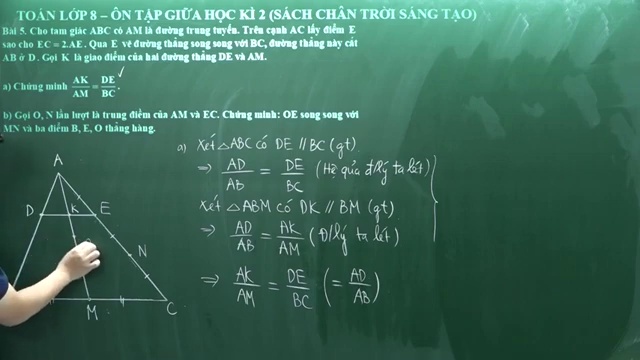 TOÁN LỚP 8 – ÔN TẬP GIỮA HỌC KÌ 2 (SÁCH CHÂN TRỜI SÁNG TẠO)
Bài 5. Cho tam giác ABC có AM là đường trung tuyến. Trên cạnh AC lấy điểm E
sao cho EC = 2.AE. Qua E vẽ đường thẳng song song với BC, đường thẳng này cắt
AB ở D. Gọi K là giao điểm của hai đường thẳng DE và AM.
a) Chứng minh AK/AM = DE/BC.
b) Gọi O, N lần lượt là trung điểm của AM và EC. Chứng minh: OE song song với
MN và ba điểm B, E, O thẳng hàng.
a) Xét △ABC có DE // BC (gt)
⇒ AD/AB = DE/BC (Hệ quả đ/lý ta lét)
Xét △ABM có DK // BM (gt)
⇒ AD/AB = AK/AM (Đ/lý ta lét)
⇒ AK/AM = DE/BC (= AD/AB)
A
D K E
N
M C